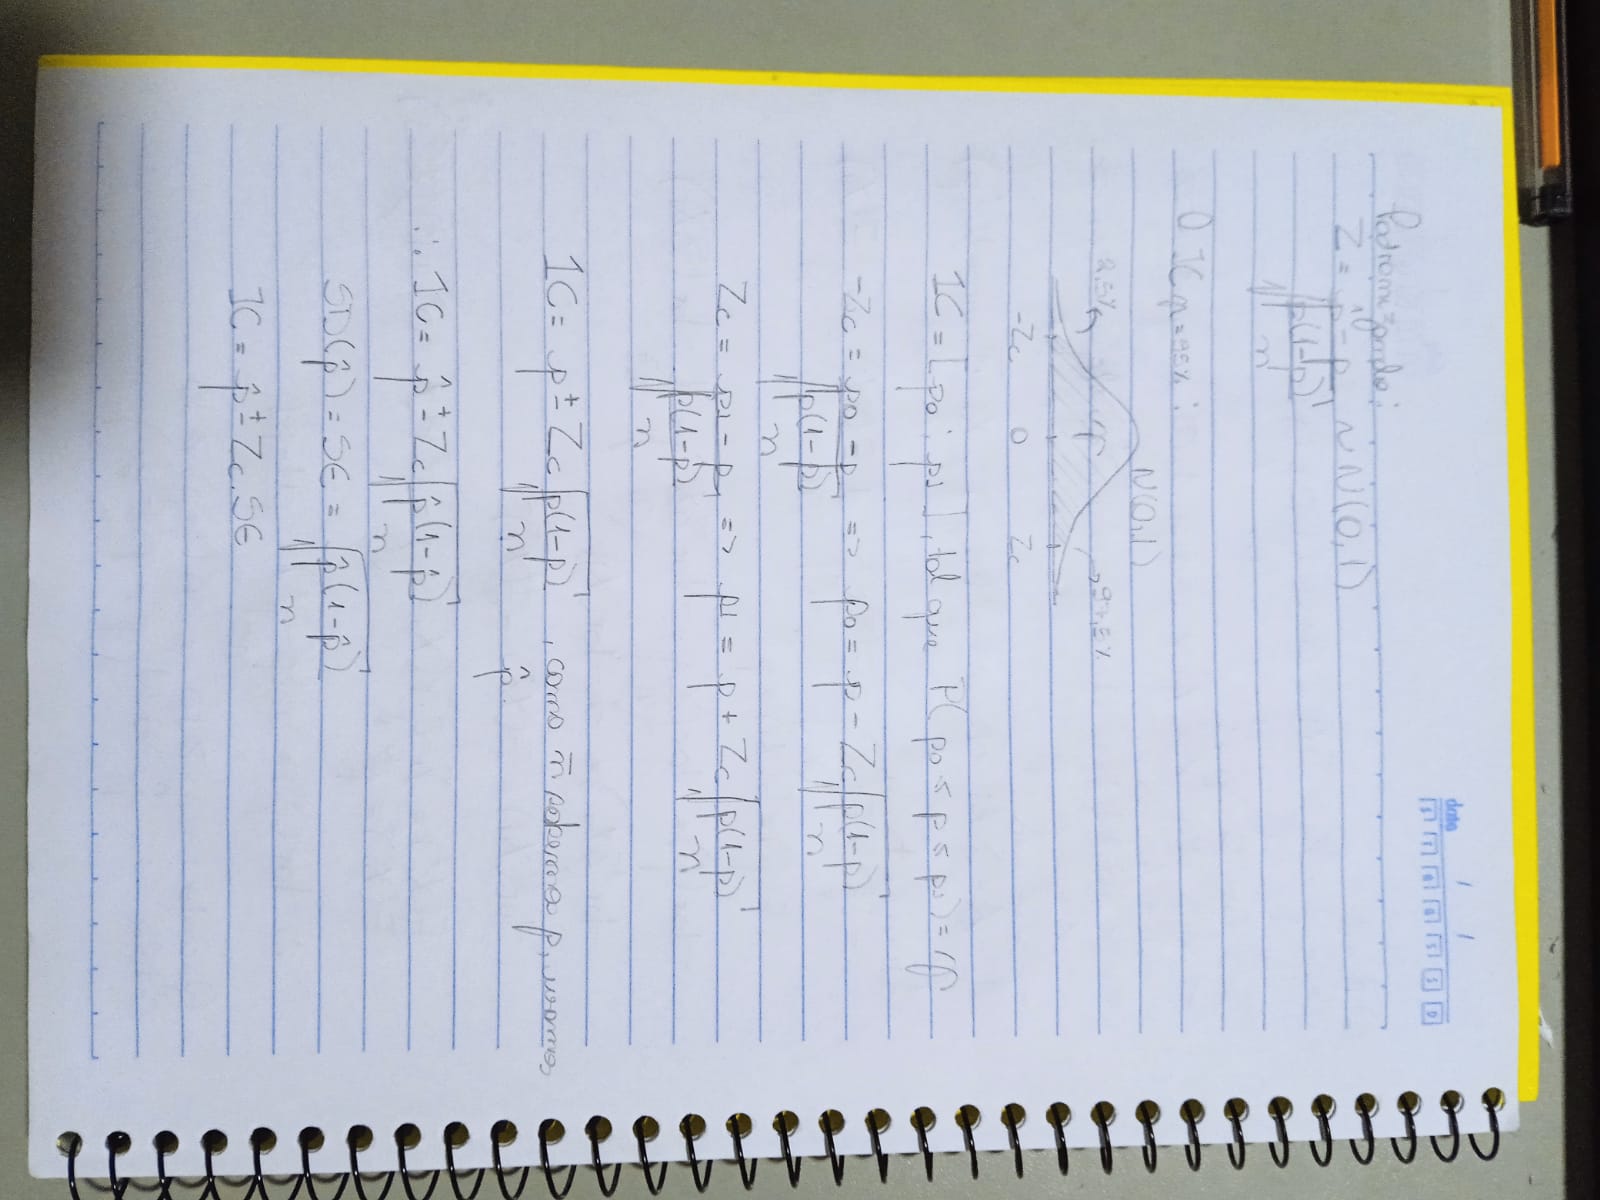 date / /
S T Q Q S S D
Padronizando:
Z = p̂ - p / √(p(1-p)/n) ~ N(0,1)
O IC γ = 95% :
N(0,1)
2,5% γ 97,5%
-Zc 0 Zc
IC = [p0 ; p1], tal que P(p0 ≤ p ≤ p1) = γ
-Zc = p0 - p / √(p(1-p)/n) => p0 = p - Zc √(p(1-p)/n)
Zc = p1 - p / √(p(1-p)/n) => p1 = p + Zc √(p(1-p)/n)
IC = p ± Zc √(p(1-p)/n) , como ñ sabemos p, usamos
p̂.
∴ IC = p̂ ± Zc √(p̂(1-p̂)/n)
SD(p̂) = SE = √(p̂(1-p̂)/n)
IC = p̂ ± Zc.SE